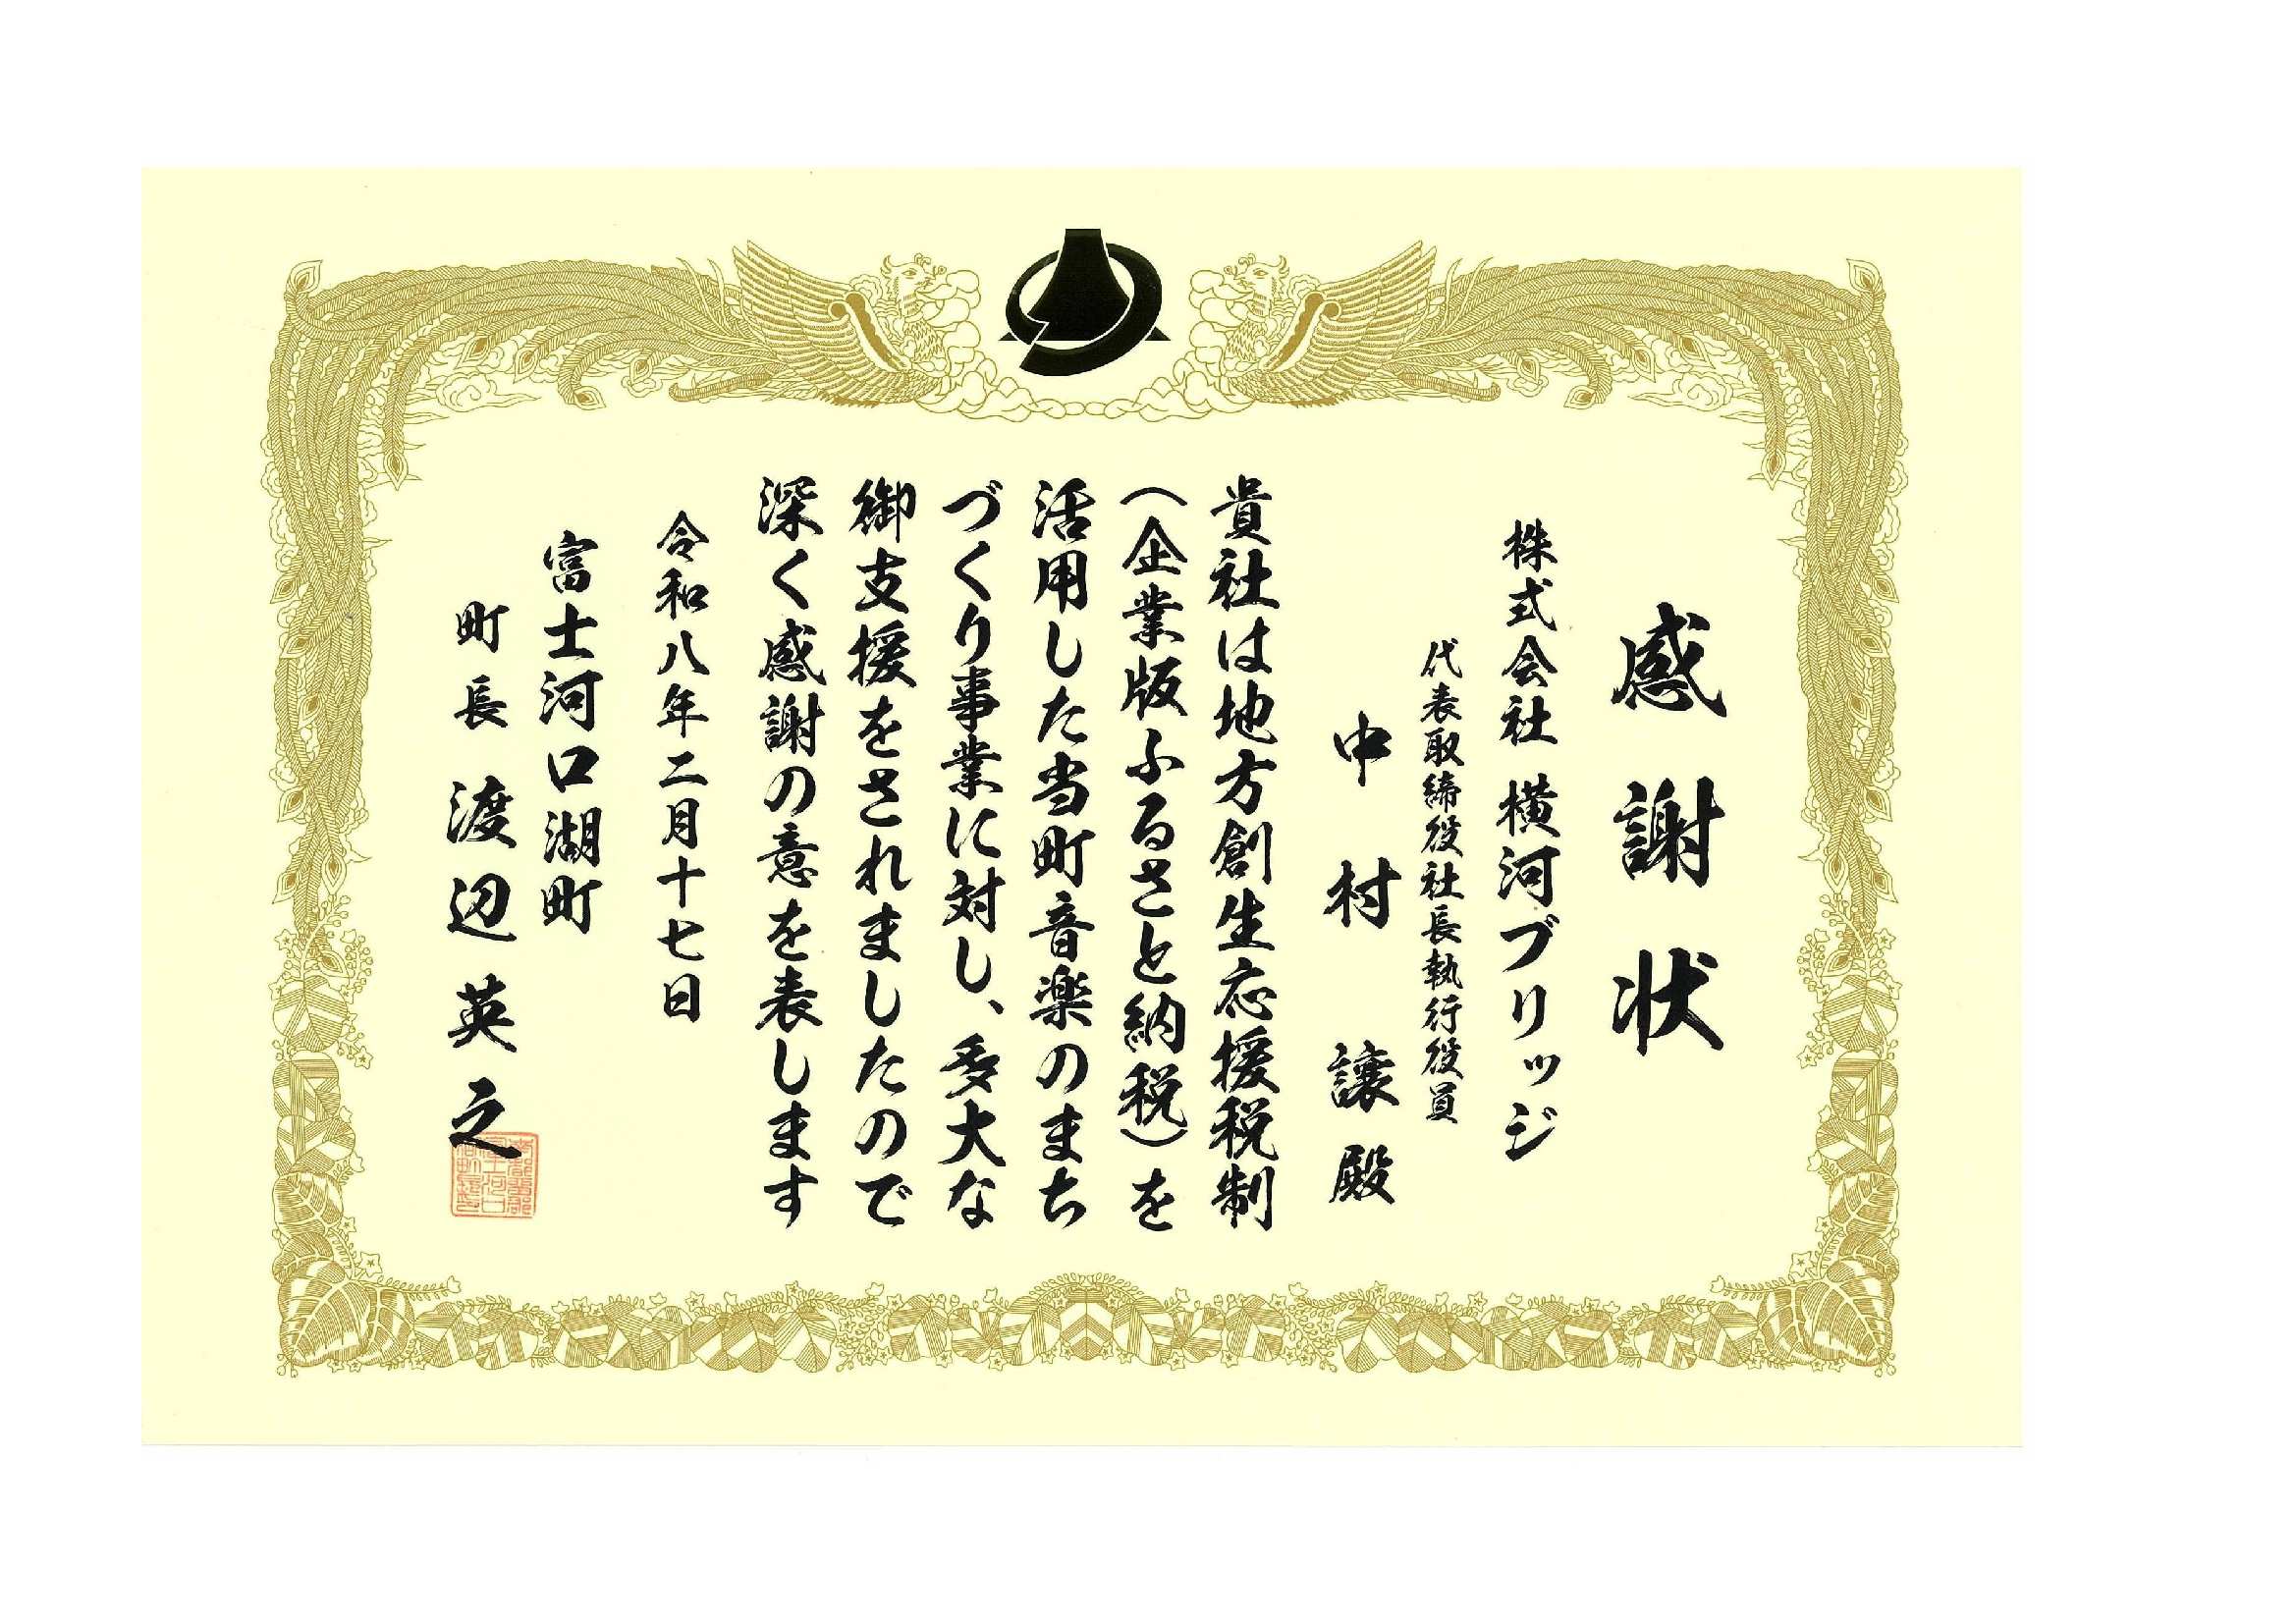 感謝状
株式会社 横河ブリッジ
代表取締役社長執行役員
中村 譲殿
貴社は地方創生応援税制
（企業版ふるさと納税）を
活用した当町音楽のまち
づくり事業に対し、多大な
御支援をされましたので
深く感謝の意を表します
令和八年二月十七日
富士河口湖町
町長 渡辺英之